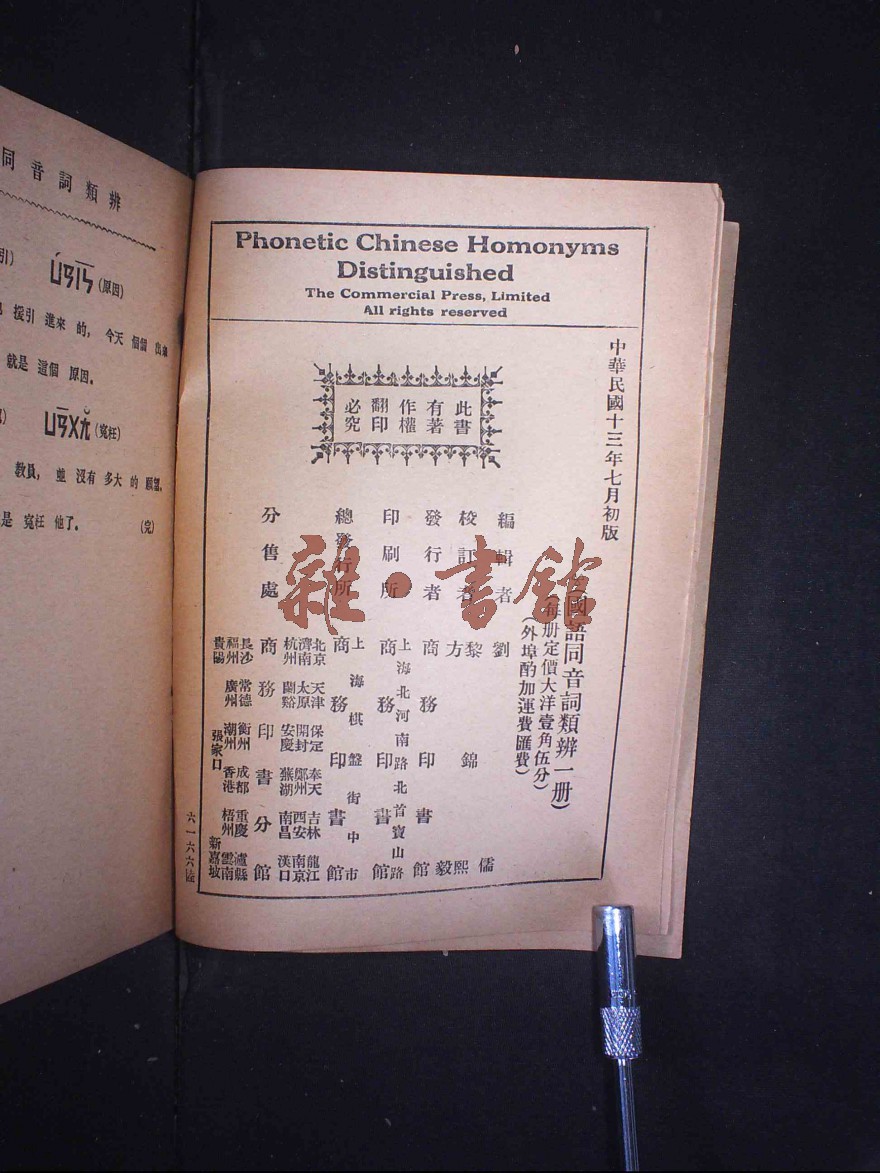 同音詞類辨
引)
ㄩㄢㄧㄣ(原因)
援引 進來 的, 今天 個個 出來
就是 這個 原因。
ㄩㄢㄨㄤ(冤枉)
教員, 並 沒有 多大 的 願望,
是 冤枉 他了。 (完)
Phonetic Chinese Homonyms
Distinguished
The Commercial Press, Limited
All rights reserved
中華民國十三年七月初版
此書
有著
作權
翻印
必究
國語同音詞類辨一册)
(每册定價大洋壹角伍分)
(外埠酌加運費匯費)
編輯者 劉儒
校訂者 黎錦熙 方毅
發行者 商務印書館
印刷所 上海北河南路北首寶山路 商務印書館
總發行所 上海棋盤街中市 商務印書館
分售處 商務印書分館
北京 天津 保定 奉天 吉林 龍江
濟南 太原 開封 鄭州 西安 南京
杭州 蘭谿 安慶 蕪湖 南昌 漢口
長沙 常德 衡州 成都 重慶 瀘縣
福州 廣州 潮州 香港 梧州 雲南
貴陽 張家口 新嘉坡
六一六六陸
雜·書館